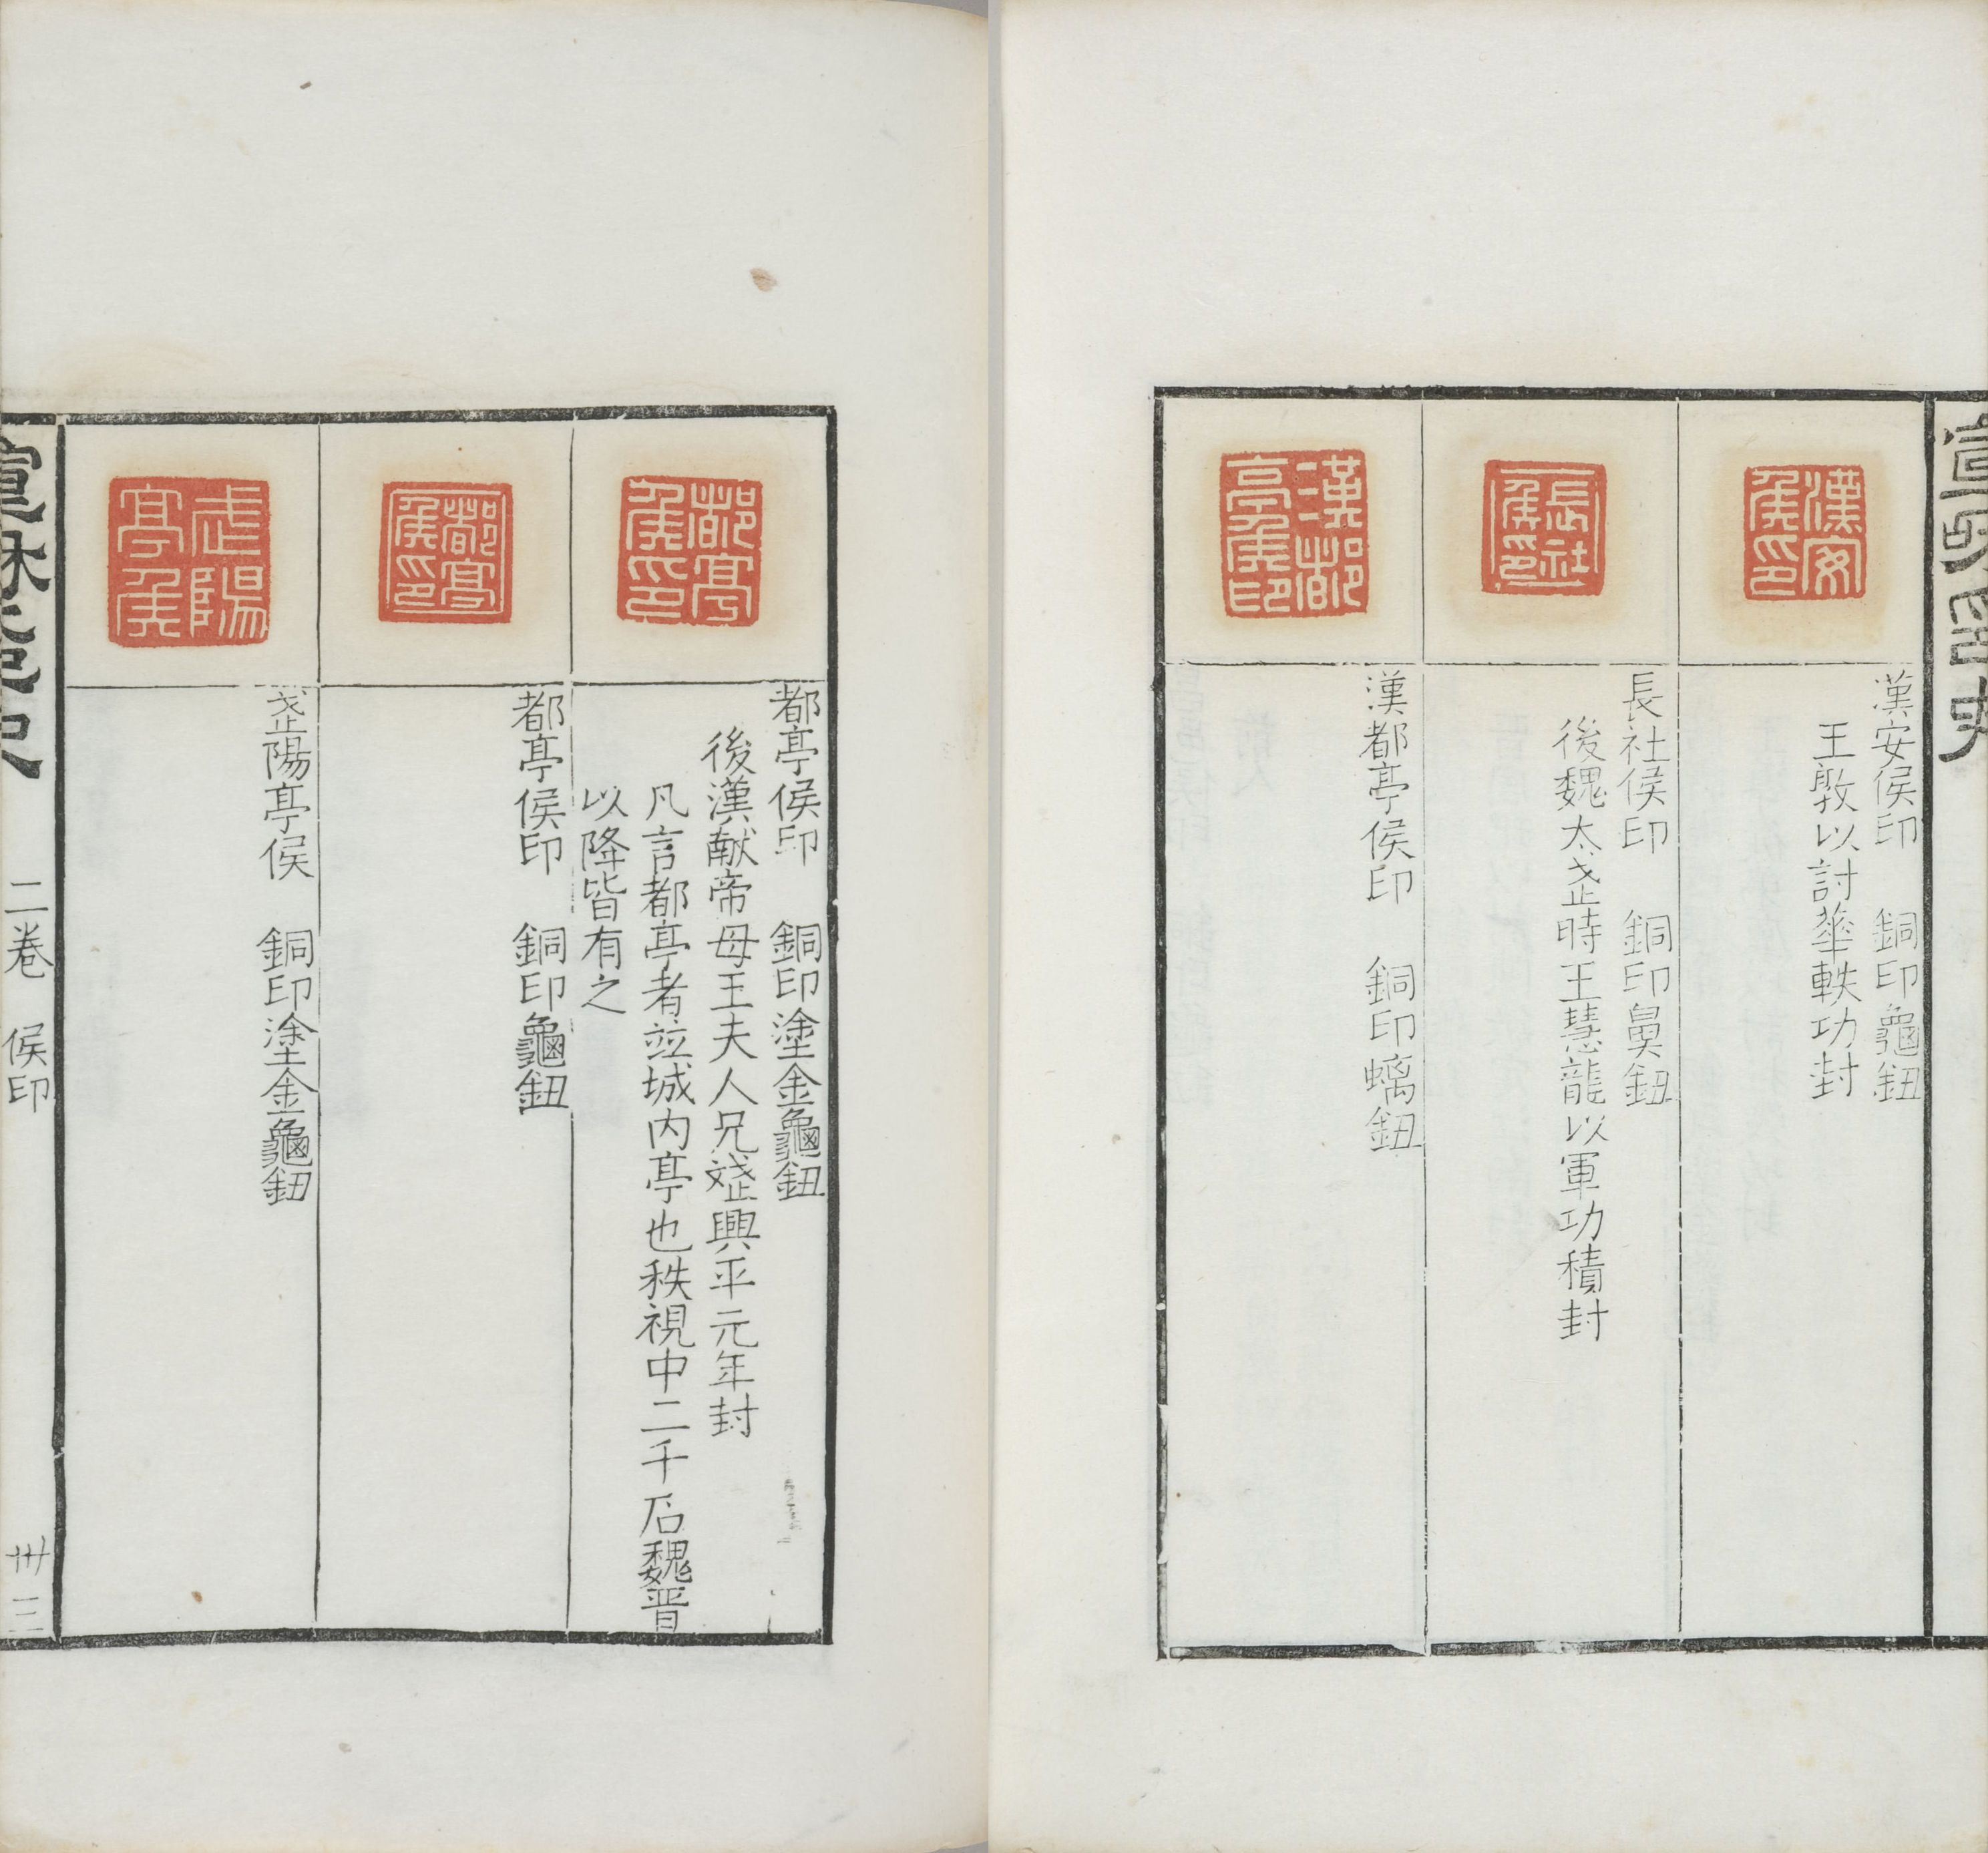 漢安侯印
漢安侯印　銅印龜鈕
王敦以討華軼功封
長社侯印
長社侯印　銅印鼻鈕
後魏太武時王慧龍以軍功積封
漢都亭侯印
漢都亭侯印　銅印螭鈕
都亭侯印
都亭侯印　銅印塗金龜鈕
後漢献帝母王夫人兄斌興平元年封
凡言都亭者竝城内亭也秩視中二千石魏晋
以降皆有之
都亭侯印
都亭侯印　銅印龜鈕
武陽亭侯
武陽亭侯　銅印塗金龜鈕
二卷　侯印
卅三